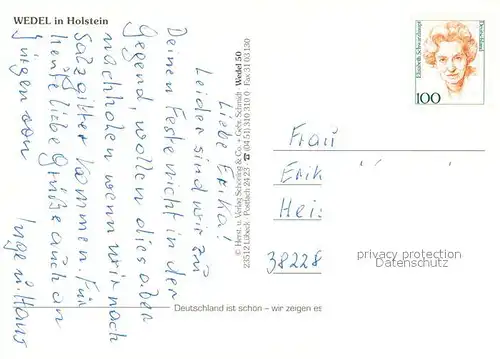 WEDEL in Holstein
Liebe Erika!
Leider sind wir zu
Deinen Feste nicht in der
Gegend, wollen dies aber
nachholen wenn wir nach
Salzgitter kommen. Für
heute liebe Grüße auch an
Jürgen von
Inge u. Hans
© Herst. u. Verlag Schöning & Co. + Gebr. Schmidt Wedel 50
23512 Lübeck · Postfach 24 23 ☎ (04 51) 310 310 · Fax 31 03 130
Deutschland ist schön – wir zeigen es
Elisabeth Schwarzhaupt
Deutschland
100
Frau
Erik
Heis
38228
privacy protection
Datenschutz